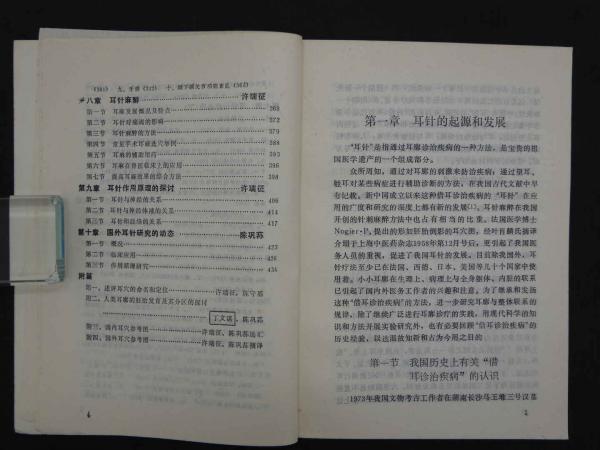 (361) 九、牙痛 (362) 十、颞下颌关节功能紊乱 (362)
八章 耳针麻醉 许瑞征
第一节 耳麻发展概况及特点 363
第二节 耳针对痛阈的影响 372
第三节 耳针麻醉的方法 379
第四节 常见手术耳麻选穴举例
第五节 耳麻的辅助用药
第六节 耳麻在兽医临床上的应用
第七节 提高耳麻效果的综合方法 398
第九章 耳针作用原理的探讨 许瑞征
第一节 耳针与神经的关系 406
第二节 耳针与神经体液的关系 414
第三节 耳针和经络的关系 417
第十章 国外耳针研究的动态 陈巩荪
第一节 概况 423
第二节 临床应用
第三节 作用原理研究 434
附篇
附一、述评耳穴的命名和定位 许瑞征、陈守鹏
附二、人类耳廓的胚胎发育及其分区的探讨
丁文祺、陈巩荪
附三、国内耳穴参考图 许瑞征、陈巩荪选汇
附四、国外耳穴参考图 许瑞征、陈巩荪摘译
4
第一章 耳针的起源和发展
“耳针”是指通过耳廓诊治疾病的一种方法，是宝贵的祖
国医学遗产的一个组成部分。
众所周知，通过对耳廓的刺激来防治疾病；通过望耳、
触耳对某些病症进行辅助诊断的方法，在我国古代文献中早
有记载。新中国成立以来，这种借耳诊治疾病的“耳针”在应
用的广度和研究的深度上都有新的发展〔1〕。耳针麻醉在我国
开创的针刺麻醉方法中也占有相当的比重。法国医学博士
Nogier·P. 提出的形如胚胎倒影的耳穴图，经叶肖麟氏摘译
介绍于上海中医药杂志1958年第12月号后，更引起了我国医
务人员的重视，促进了我国耳针的发展。目前除我国外，耳
针疗法至少已在法国、西德、日本、美国等几十个国家中使
用着。小小耳廓，在生理上、病理上与全身躯体、内脏的联系
已引起了国内外医务工作者的兴趣和注意。为了继承和发扬
这种“借耳诊治疾病”的方法，进一步研究耳廓与整体联系的
规律，除了继续广泛进行耳廓诊疗的实践，用现代科学的知
识和方法开展实验研究外，也有必要回顾“借耳诊治疾病”的
历史经验，以达温故知新和古为今用之目的
第一节 我国历史上有关“借
耳诊治疾病”的认识
1973年我国文物考古工作者在湖南长沙马王堆三号汉墓
1